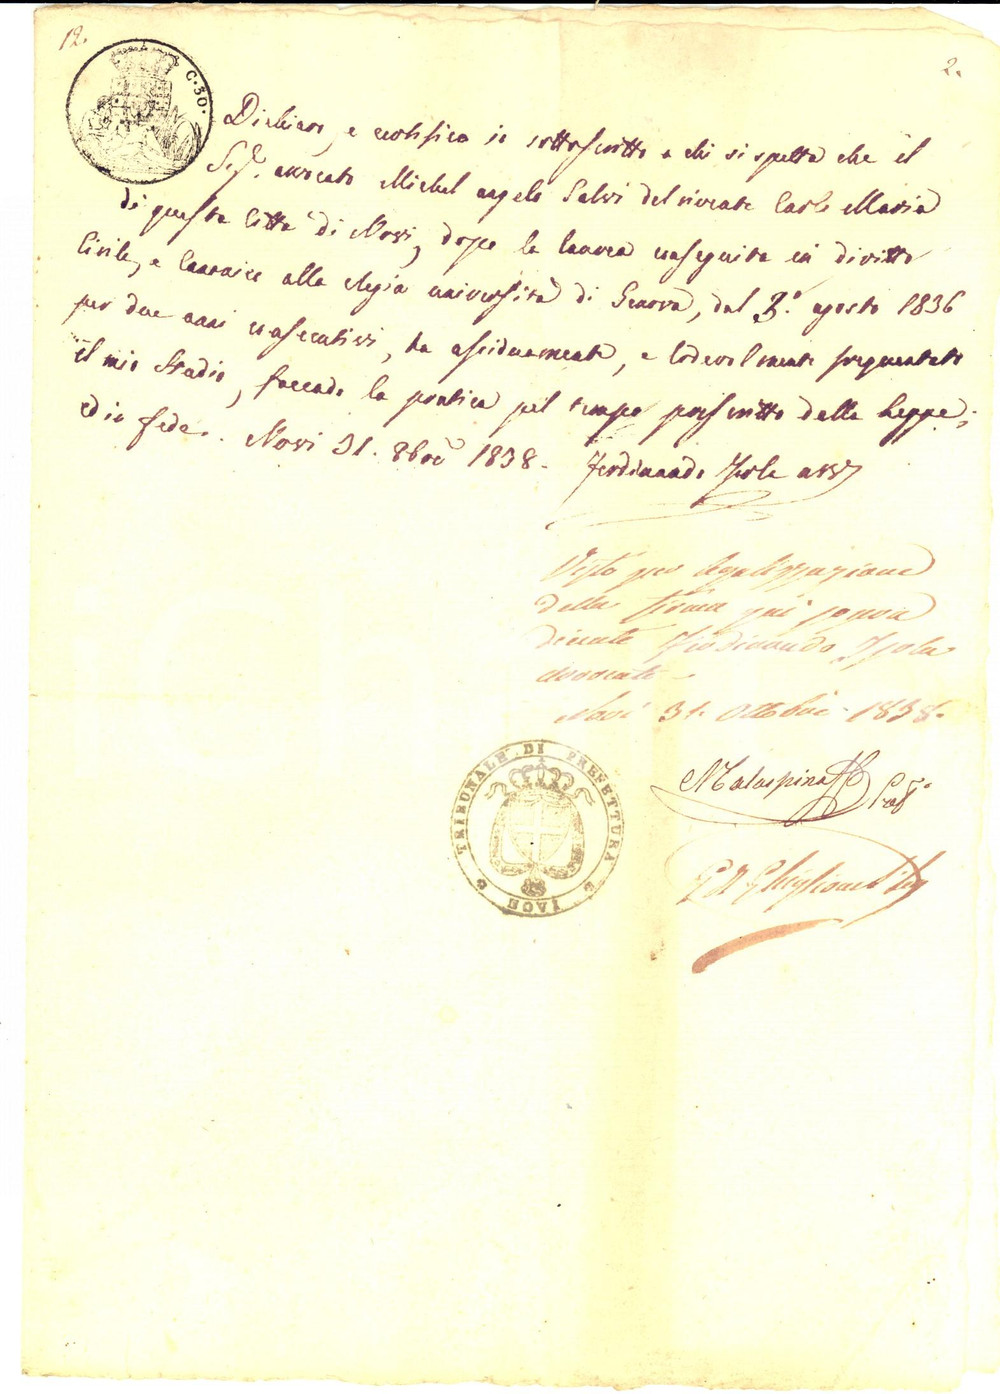 12.
2.
C. 30.
Dichiaro, e certifico io sottoscritto a chi si spetta che il
Sig.r avvocato Michel angelo Salvi del vivente Carlo Maria
di questa Città di Novi, dopo la laurea conseguita in diritto
Civile, e Canonico alla Regia università di Genova, dal 3.° agosto 1836
per due anni consecutivi, ha assiduamente, e lodevolmente frequentato
il mio Studio, facendo la pratica pel tempo prescritto dalla Legge;
ed in fede. Novi 31. 8bre 1838.
Ferdinando Isola avv.
Visto per legalizzazione
della firma qui sopra
Ferdinando Isola
avvocato
Novi 31. Ottobre 1838.
Malaspina Pref.o
Ghiglione
TRIBUNALE DI PREFETTURA
NOVI